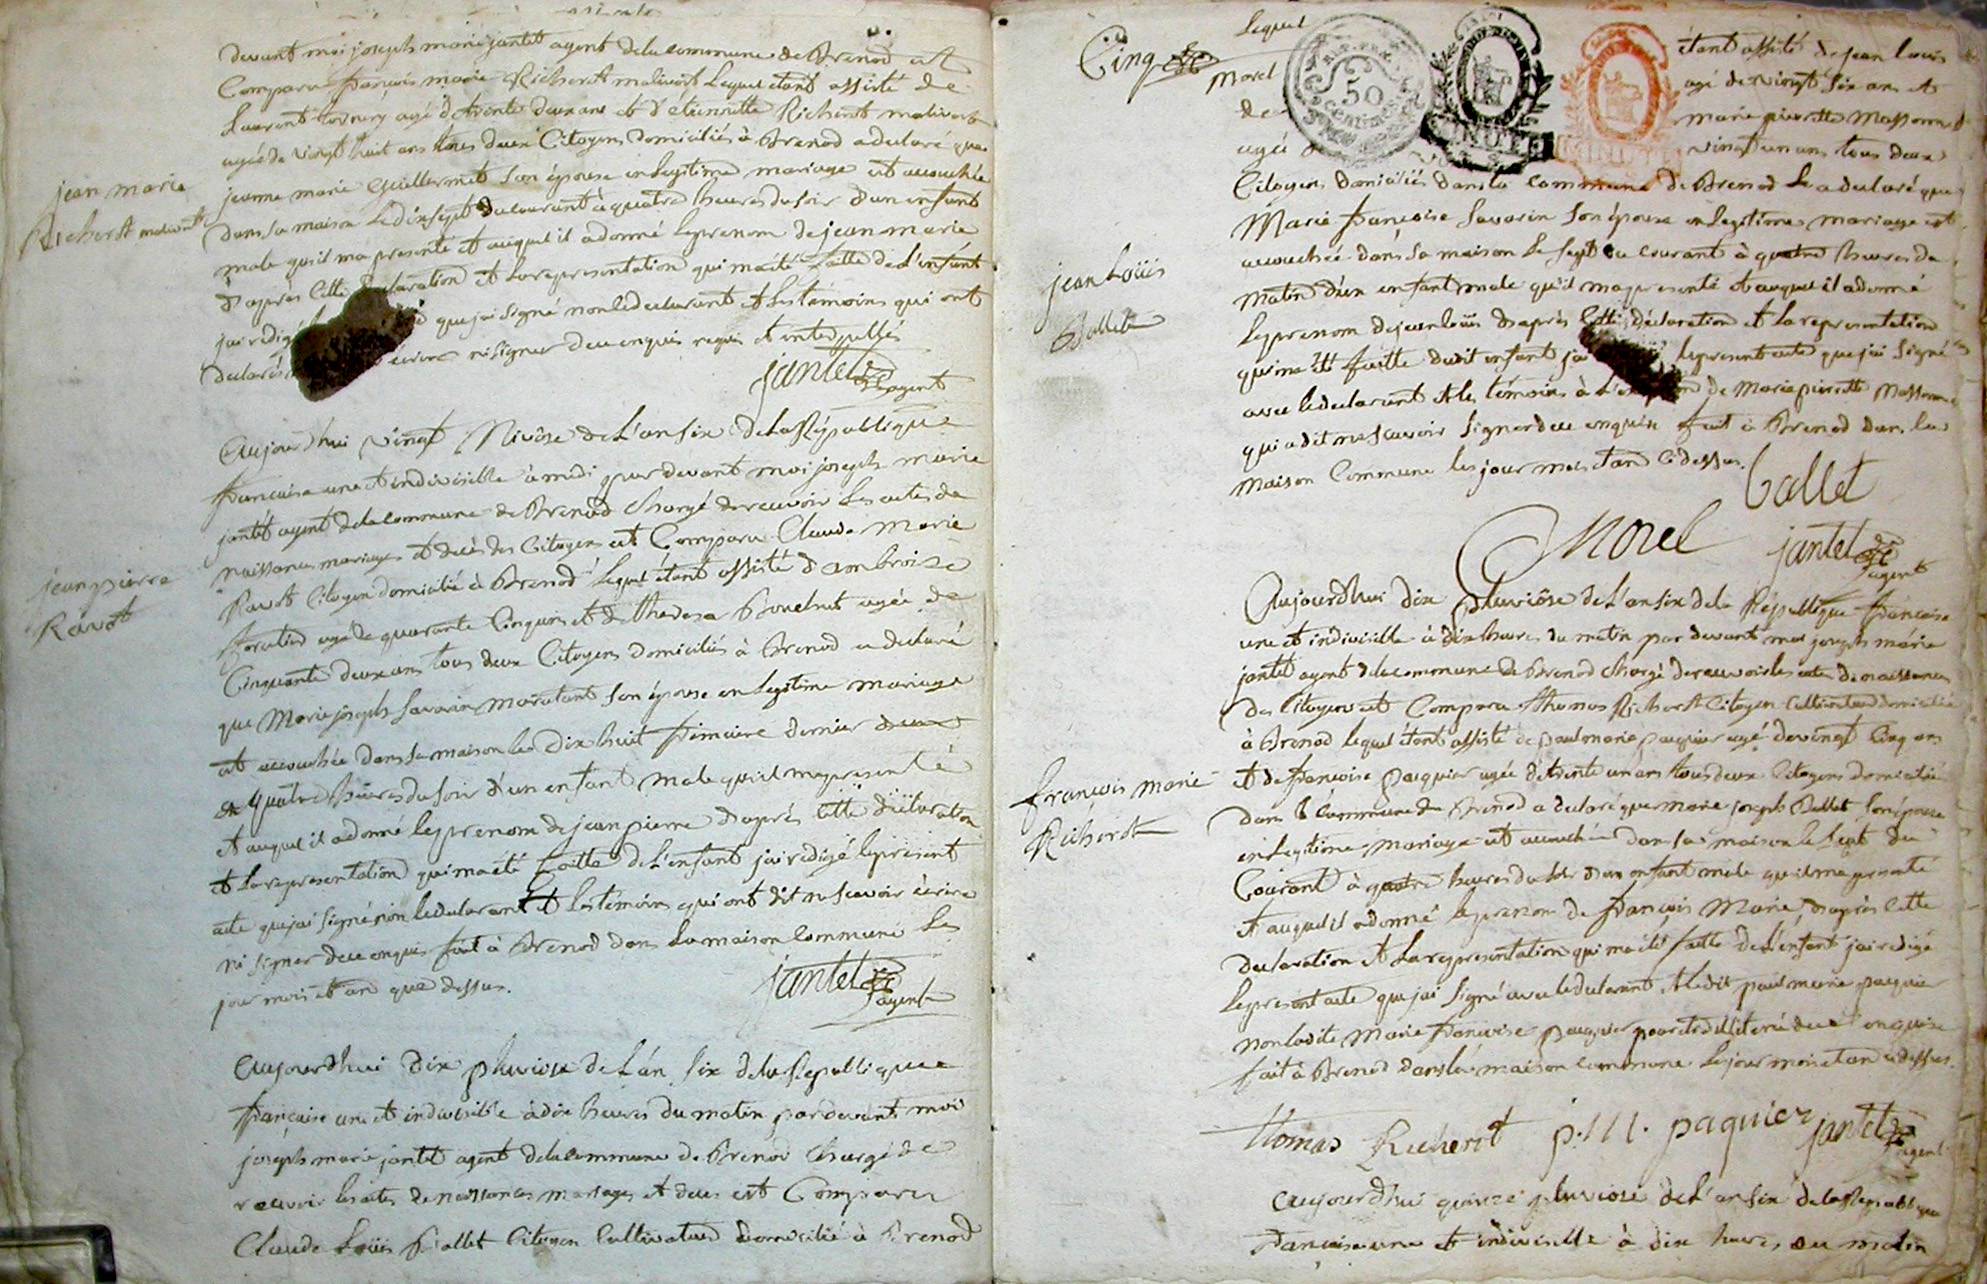 devant moi joseph marie jantet agent de la commune de Brenod est
Comparu françois marie Richerot malivert lequel etant assisté de
Laurent tornery agé de trente deux ans et d'etiennette Richerot malivert
agée de vingt huit ans tous deux Citoyens domiciliés à Brenod a declaré que
jean marie
Richerot malivert
jeanne marie Guillermet son épouse en legitime mariage est accouchée
dans sa maison le dix sept du courant à quatre heures du soir d'un enfant
male qu'il ma presenté et auquel il a donné le prenom de jean marie
d'après cette declaration et la representation qui ma été faitte de l'enfant
jai redigé que jai signé non le declarant et les témoins qui ont
declaré écrire ni signer de ce enquis requis et interpellés
jantet
agent
Aujourd'hui vingt Nivôse de l'an six de la République
française une et indivisible à midi par devant moi joseph marie
jantet agent de la commune de Brenod chargé de recevoir les actes de
naissances mariages et décès des Citoyens est Comparu Claude Marie
jean pierre
Ravot
Ravot Citoyen domicilié à Brenod lequel étant assisté d'ambroise
agé de quarante cinq ans et de therese agée de
Cinquante deux ans tous deux Citoyens domiciliés à Brenod a declaré
que Marie joseph Savarin Maratant son épouse en legitime mariage
est accouchée dans sa maison le dix huit frimaire dernier
quatre heures du soir d'un enfant male qu'il ma presenté
et auquel il a donné le prenom de jean pierre d'après cette déclaration
et la representation qui ma été faitte de l'enfant jai redigé le présent
acte que jai signé non le declarant et les temoins qui ont dit ne scavoir écrire
ni signer de ce enquis fait à Brenod dans la maison commune les
jour mois et an que dessus.
jantet
agent
Aujourd'hui dix pluviôse de l'an six de la Republique
française une et indivisible à dix heures du matin par devant moi
joseph marie jantet agent de la commune de Brenod chargé de
recevoir les actes de naissances mariages et deces est Comparu
Claude Loüis Ballet Citoyen Cultivateur domicilié à Brenod
Cinq
lequel étant assisté de jean Louis
Morel agé de vingt six ans et
de marie pierrette Massonnet
agée vingt un ans tous deux
Citoyens domiciliés dans la commune de Brenod le a declaré que
Marie françoise Savarin son épouse en legitime mariage est
accouchée dans sa maison le sept du courant à quatre heures du
jean Loüis
Ballet
matin d'un enfant male qu'il ma presenté et auquel il a donné
le prenom de jean louis d'après cette déclaration et la representation
qui ma été faitte dudit enfant jai le present acte que jai signé
avec le declarant et les témoins à l' de Marie pierrette Massonnet
qui a dit ne scavoir signer de ce enquis fait à Brenod dans la
maison Commune les jour mois et an ci dessus.
Ballet
Morel
jantet
agent
Aujourd'hui dix pluviôse de l'an six de la République française
une et indivisible à dix heures du matin par devant moi joseph marie
jantet agent de la commune de Brenod chargé de recevoir les actes de naissances
des Citoyens est Comparu thomas Richerot Citoyen Cultivateur domicilié
à Brenod lequel étant assisté de paul marie paquier agé de vingt cinq ans
françois marie
Richerot
et de françoise paquier agée de trente un ans tous deux Citoyens domiciliés
dans la commune de Brenod a declaré que marie joseph Ballet son épouse
en legitime mariage est accouchée dans sa maison le sept du
Courant à quatre heures du soir d'un enfant male qu'il ma presenté
et auquel il a donné le prenom de françois Marie d'après cette
declaration et la representation qui ma été faitte de l'enfant jai redigé
le present acte que jai signé avec le declarant et ledit paul marie paquier
non ladite Marie françoise paquier pour être illiterée de ce enquise
fait à Brenod dans la maison commune les jour mois et an ci dessus.
thomas Richerot p. M. paquier jantet
agent
Aujourd'hui quinze pluviôse de l'an six de la Republique
française une et indivisible à dix heures du matin